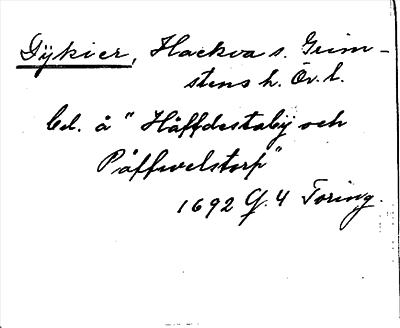 Dÿkier, Hackva s. Grim-
stens h. Ör. l.
Cd. å "Håffdestabÿ och
Påffwelstorp"
1692 G. 4 Toring.